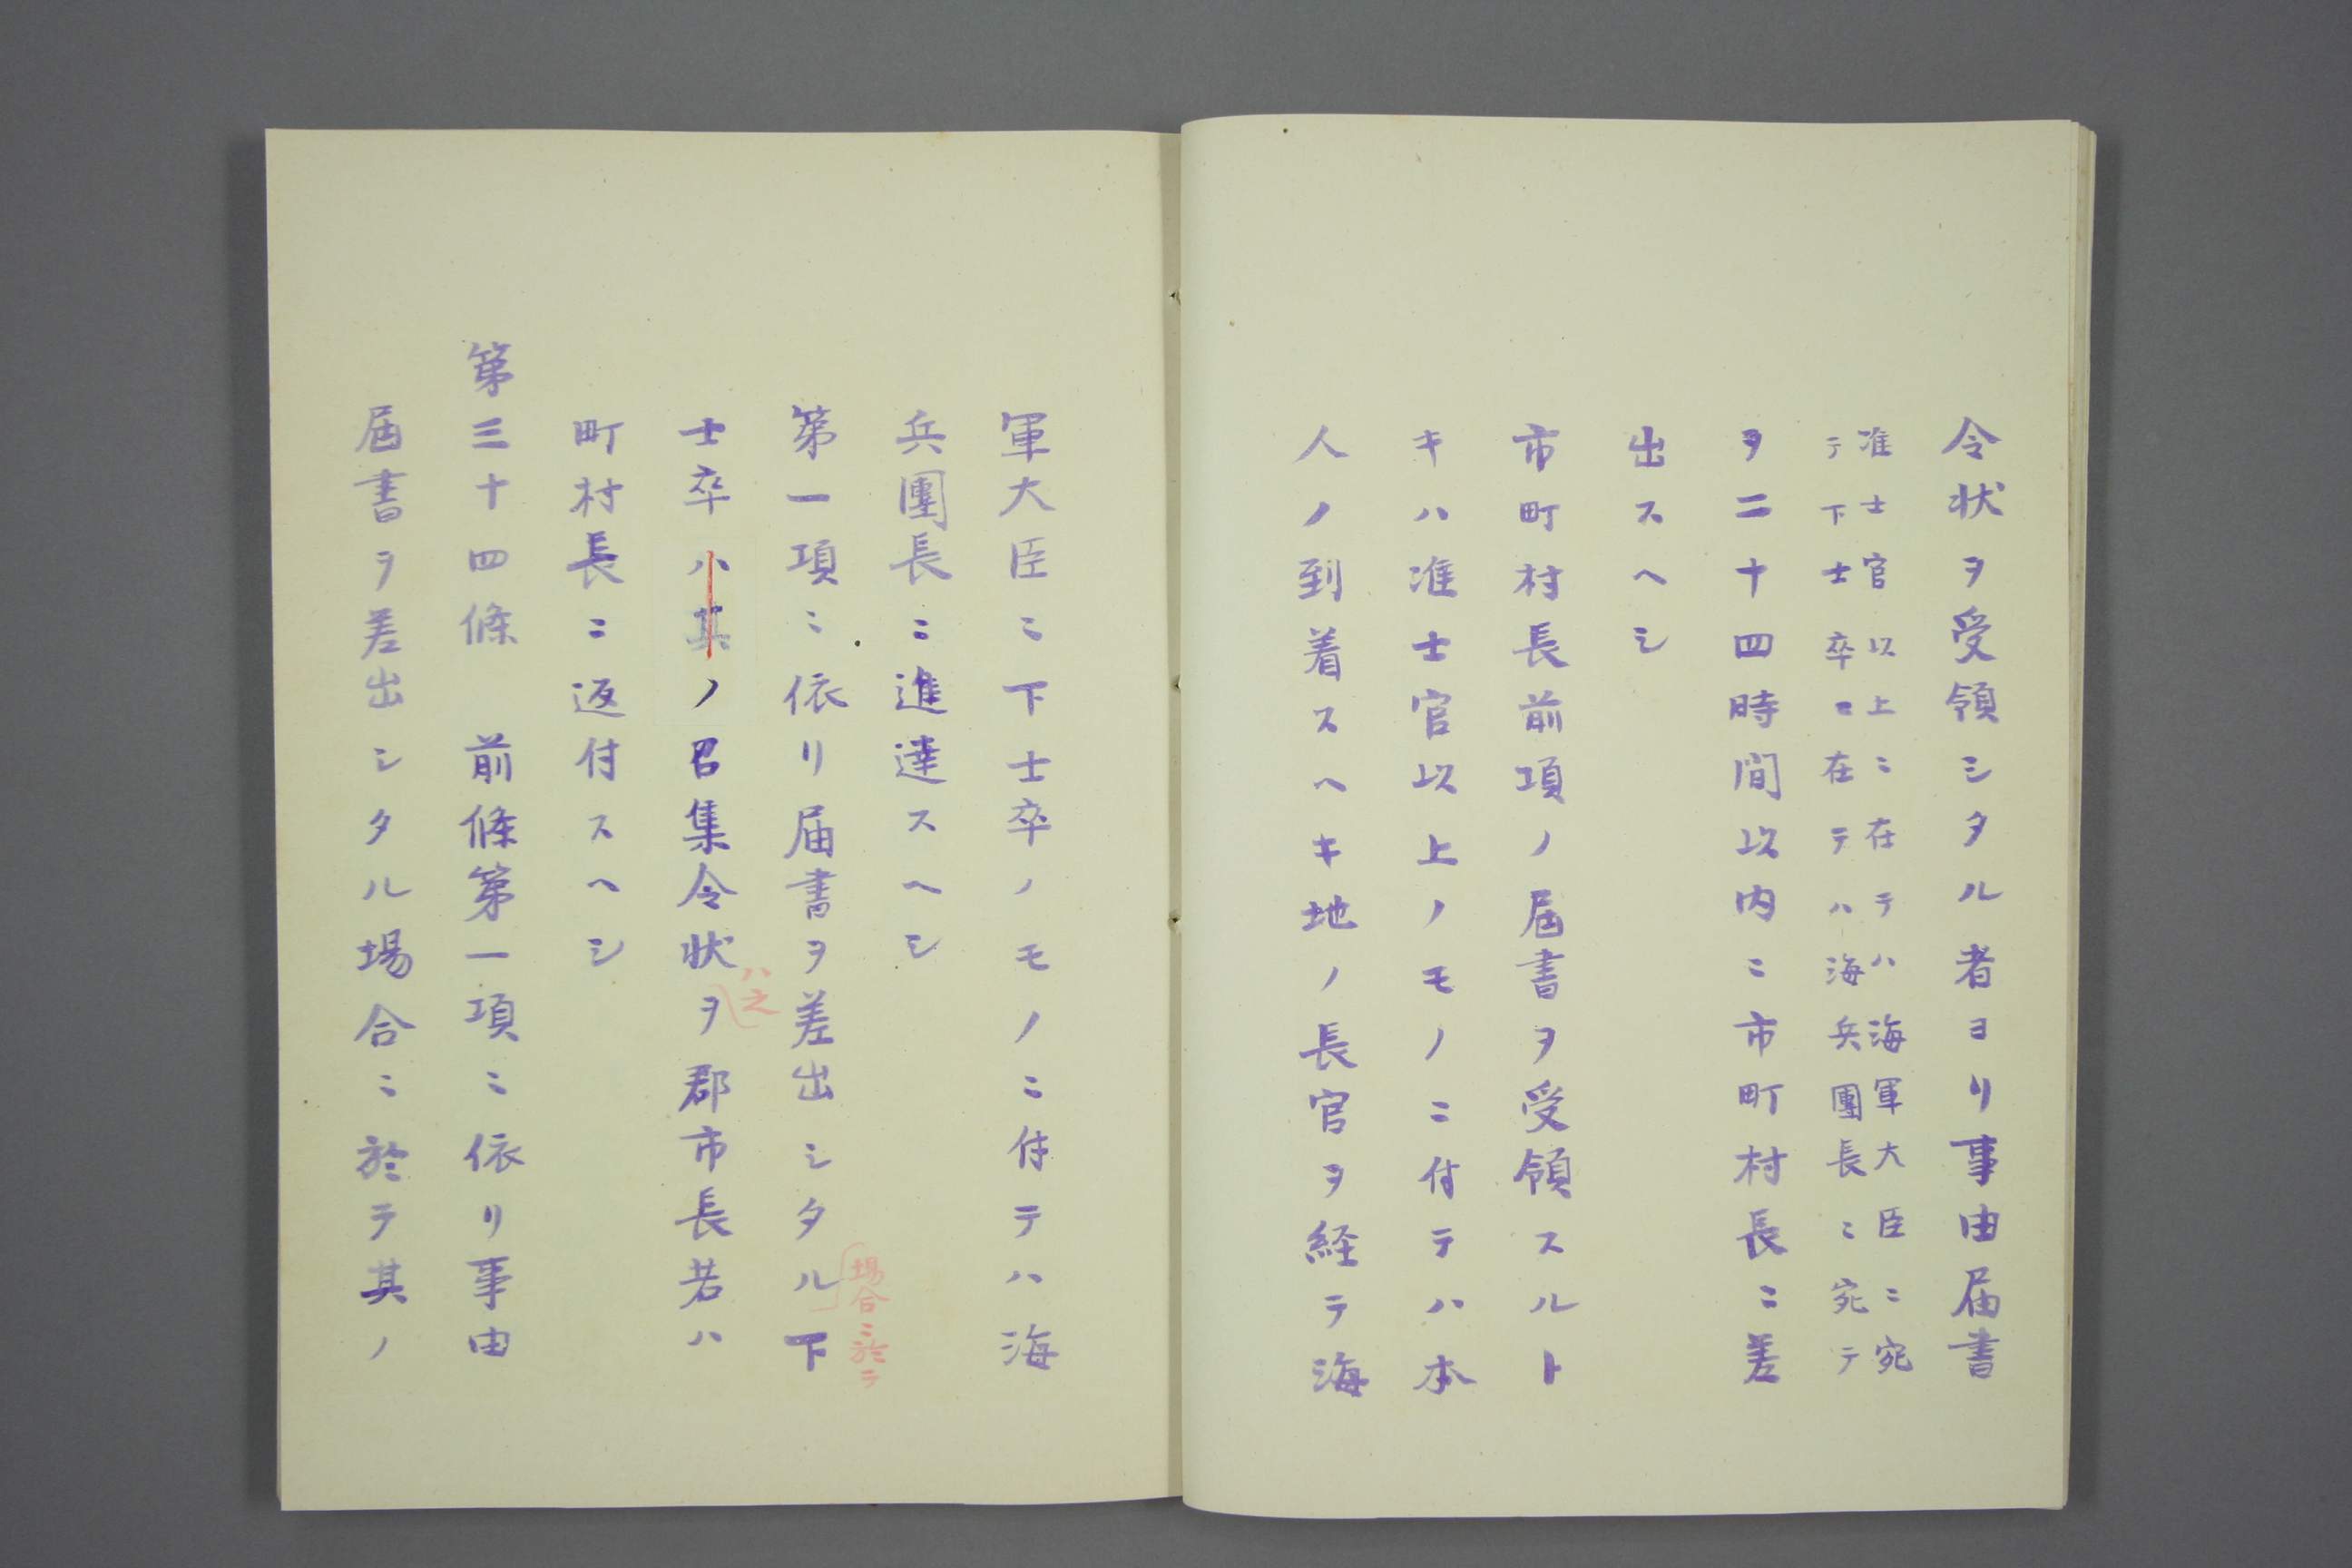 令状ヲ受領シタル者ヨリ事由届書
准士官以上ニ在テハ海軍大臣ニ宛
テ下士卒ニ在テハ海兵團長ニ宛テ
ヲ二十四時間以内ニ市町村長ニ差
出スヘシ
市町村長前項ノ届書ヲ受領スルト
キハ准士官以上ノモノニ付テハ本
人ノ到着スヘキ地ノ長官ヲ経テ海
軍大臣ニ下士卒ノモノニ付テハ海
兵團長ニ進達スヘシ
第一項ニ依リ届書ヲ差出シタル下
場合ニ於テ
士卒ハ其ノ召集令状ヲ郡市長若ハ
ハ之
町村長ニ返付スヘシ
第三十四條 前條第一項ニ依リ事由
届書ヲ差出シタル場合ニ於テ其ノ